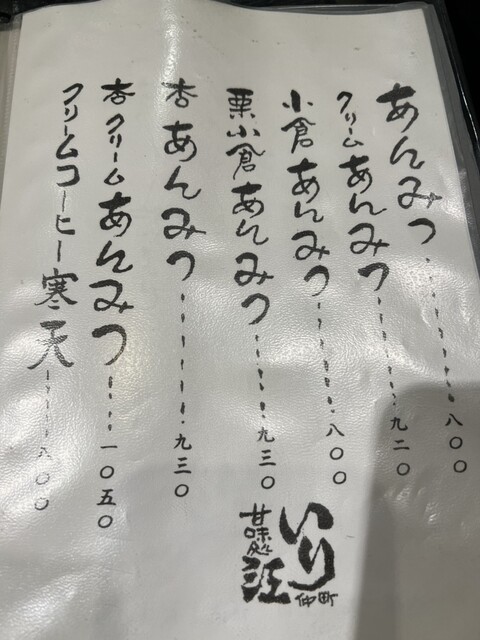 あんみつ……八〇〇
クリームあんみつ……九二〇
小倉あんみつ……八〇〇
栗小倉あんみつ……九三〇
杏あんみつ……九三〇
杏クリームあんみつ……一〇五〇
クリームコーヒー寒天……八〇〇
甘味処
いり江
仲町